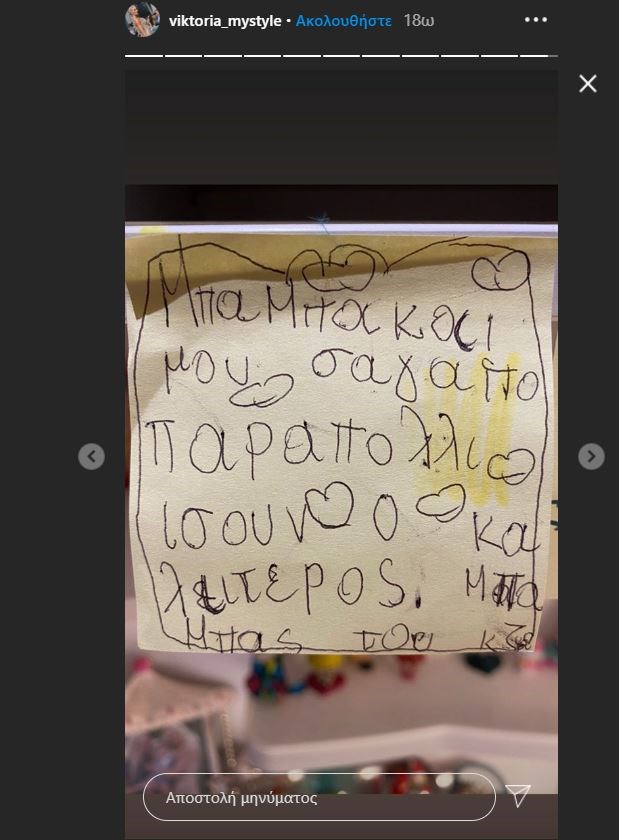 viktoria_mystyle • Ακολουθήστε 18ω
Μπαμπακοςι
μου σαγαπο
παραπολλι
ισουν ο κα
λιτερος. Μπα
Μπας του
Αποστολή μηνύματος